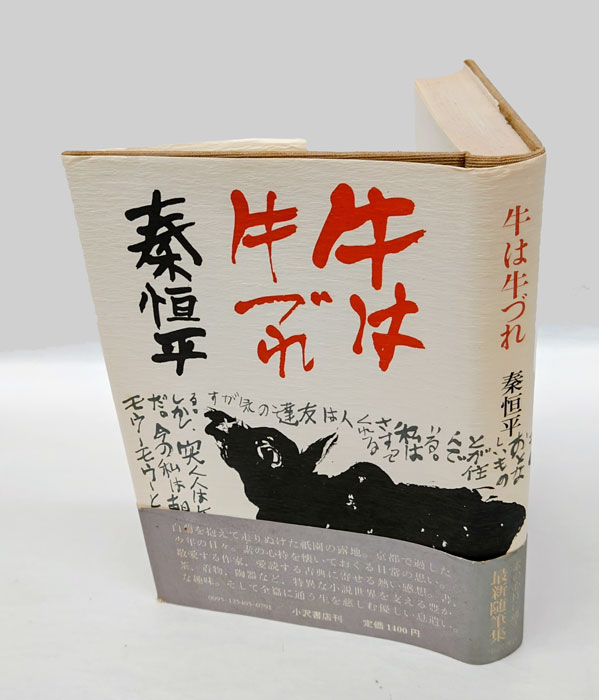 牛は
牛づれ
秦恒平
牛は牛づれ 秦恒平
おとな
しいもの
とが住
いる。
私は
さすって
くれる
人は
友達の家が
しかし
だ。今の私は
モウーモウーと
を抱えて走りぬけた祇園の露地。京都で過した
少年の日々。素の心持を懐いておくる日常の思い。
敬愛する作家、愛読する古典に寄せる熱い感想。書、
茶、着物、陶器など、特異な小説世界を支える豊か
な趣味。そして全篇に通う生を慈しむ優しい息遣い。
0095-125405-0791 小沢書店刊 定価1400円
最新随筆集